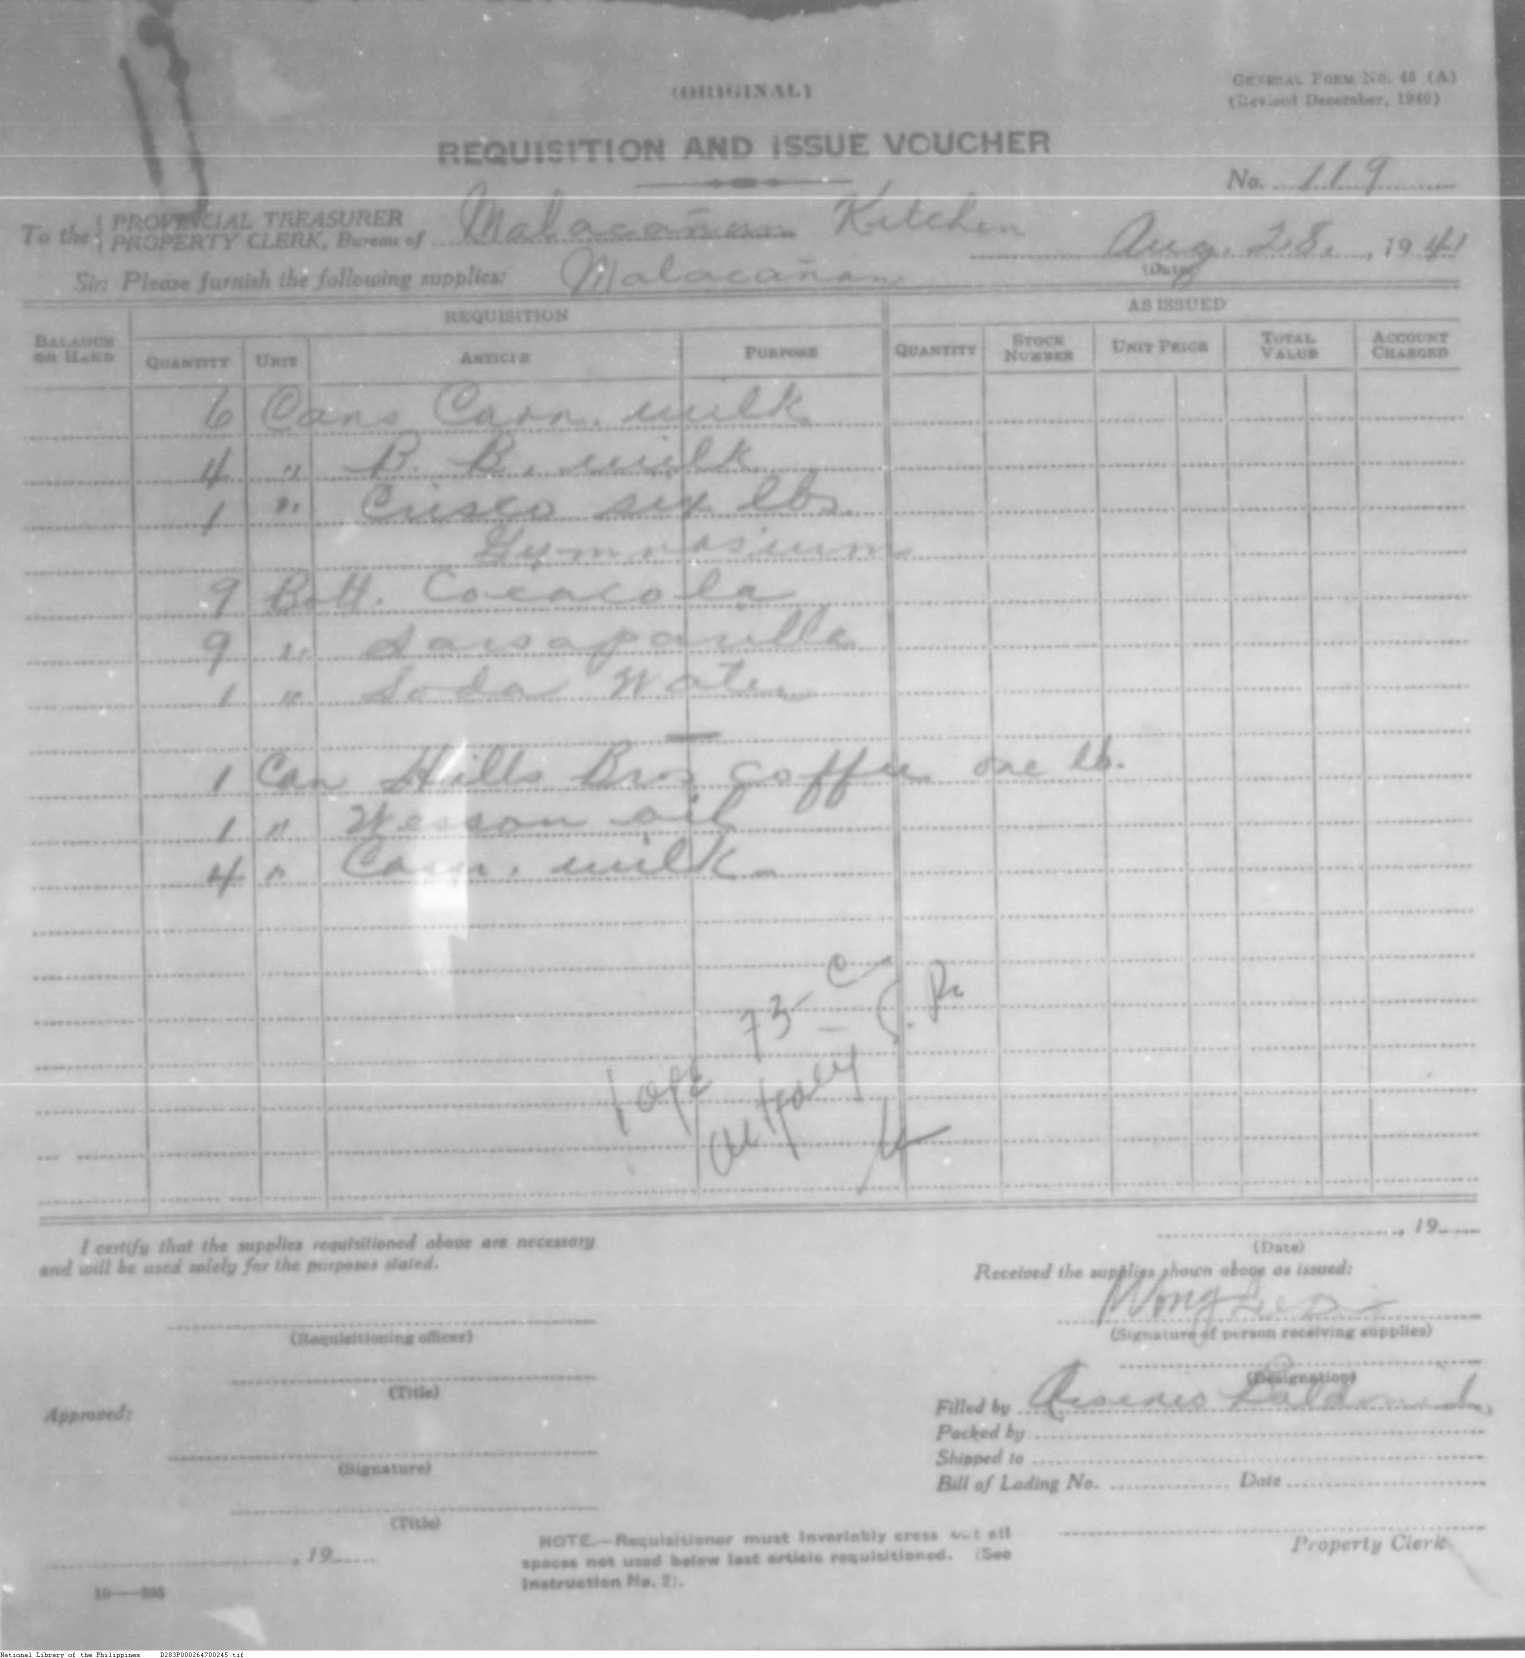 (ORIGINAL)
GENERAL FORM No. 45 (A)
(Revised December, 1940)
REQUISITION AND ISSUE VOUCHER
No. 119
To the PROVINCIAL TREASURER
PROPERTY CLERK, Bureau of Malacañan Kitchen
Aug. 28, 1941
(Date)
Sir: Please furnish the following supplies: Malacañan
REQUISITION AS ISSUED
BALANCE ON HAND QUANTITY UNIT ARTICLE PURPOSE QUANTITY STOCK NUMBER UNIT PRICE TOTAL VALUE ACCOUNT CHARGED
6 Cans Carn. milk
4 " B. B. milk
1 " Crisco six lbs.
Gymnasium
9 Bott. Cocacola
9 " Sarsaparilla
1 " Soda Water
1 Can Hills Bros coffee one lb.
1 " Wesson oil
4 " Carn. milk
73
I certify that the supplies requisitioned above are necessary
and will be used solely for the purposes stated.
(Requisitioning officer)
(Title)
Approved:
(Signature)
(Title)
, 19
10—395
, 19
(Date)
Received the supplies shown above as issued:
Wong
(Signature of person receiving supplies)
(Designation)
Filled by Arsenio
Packed by
Shipped to
Bill of Lading No. Date
Property Clerk
NOTE.—Requisitioner must invariably cross out all
spaces not used below last article requisitioned. (See
Instruction No. 2).
National Library of the Philippines D283P000264700245.tif